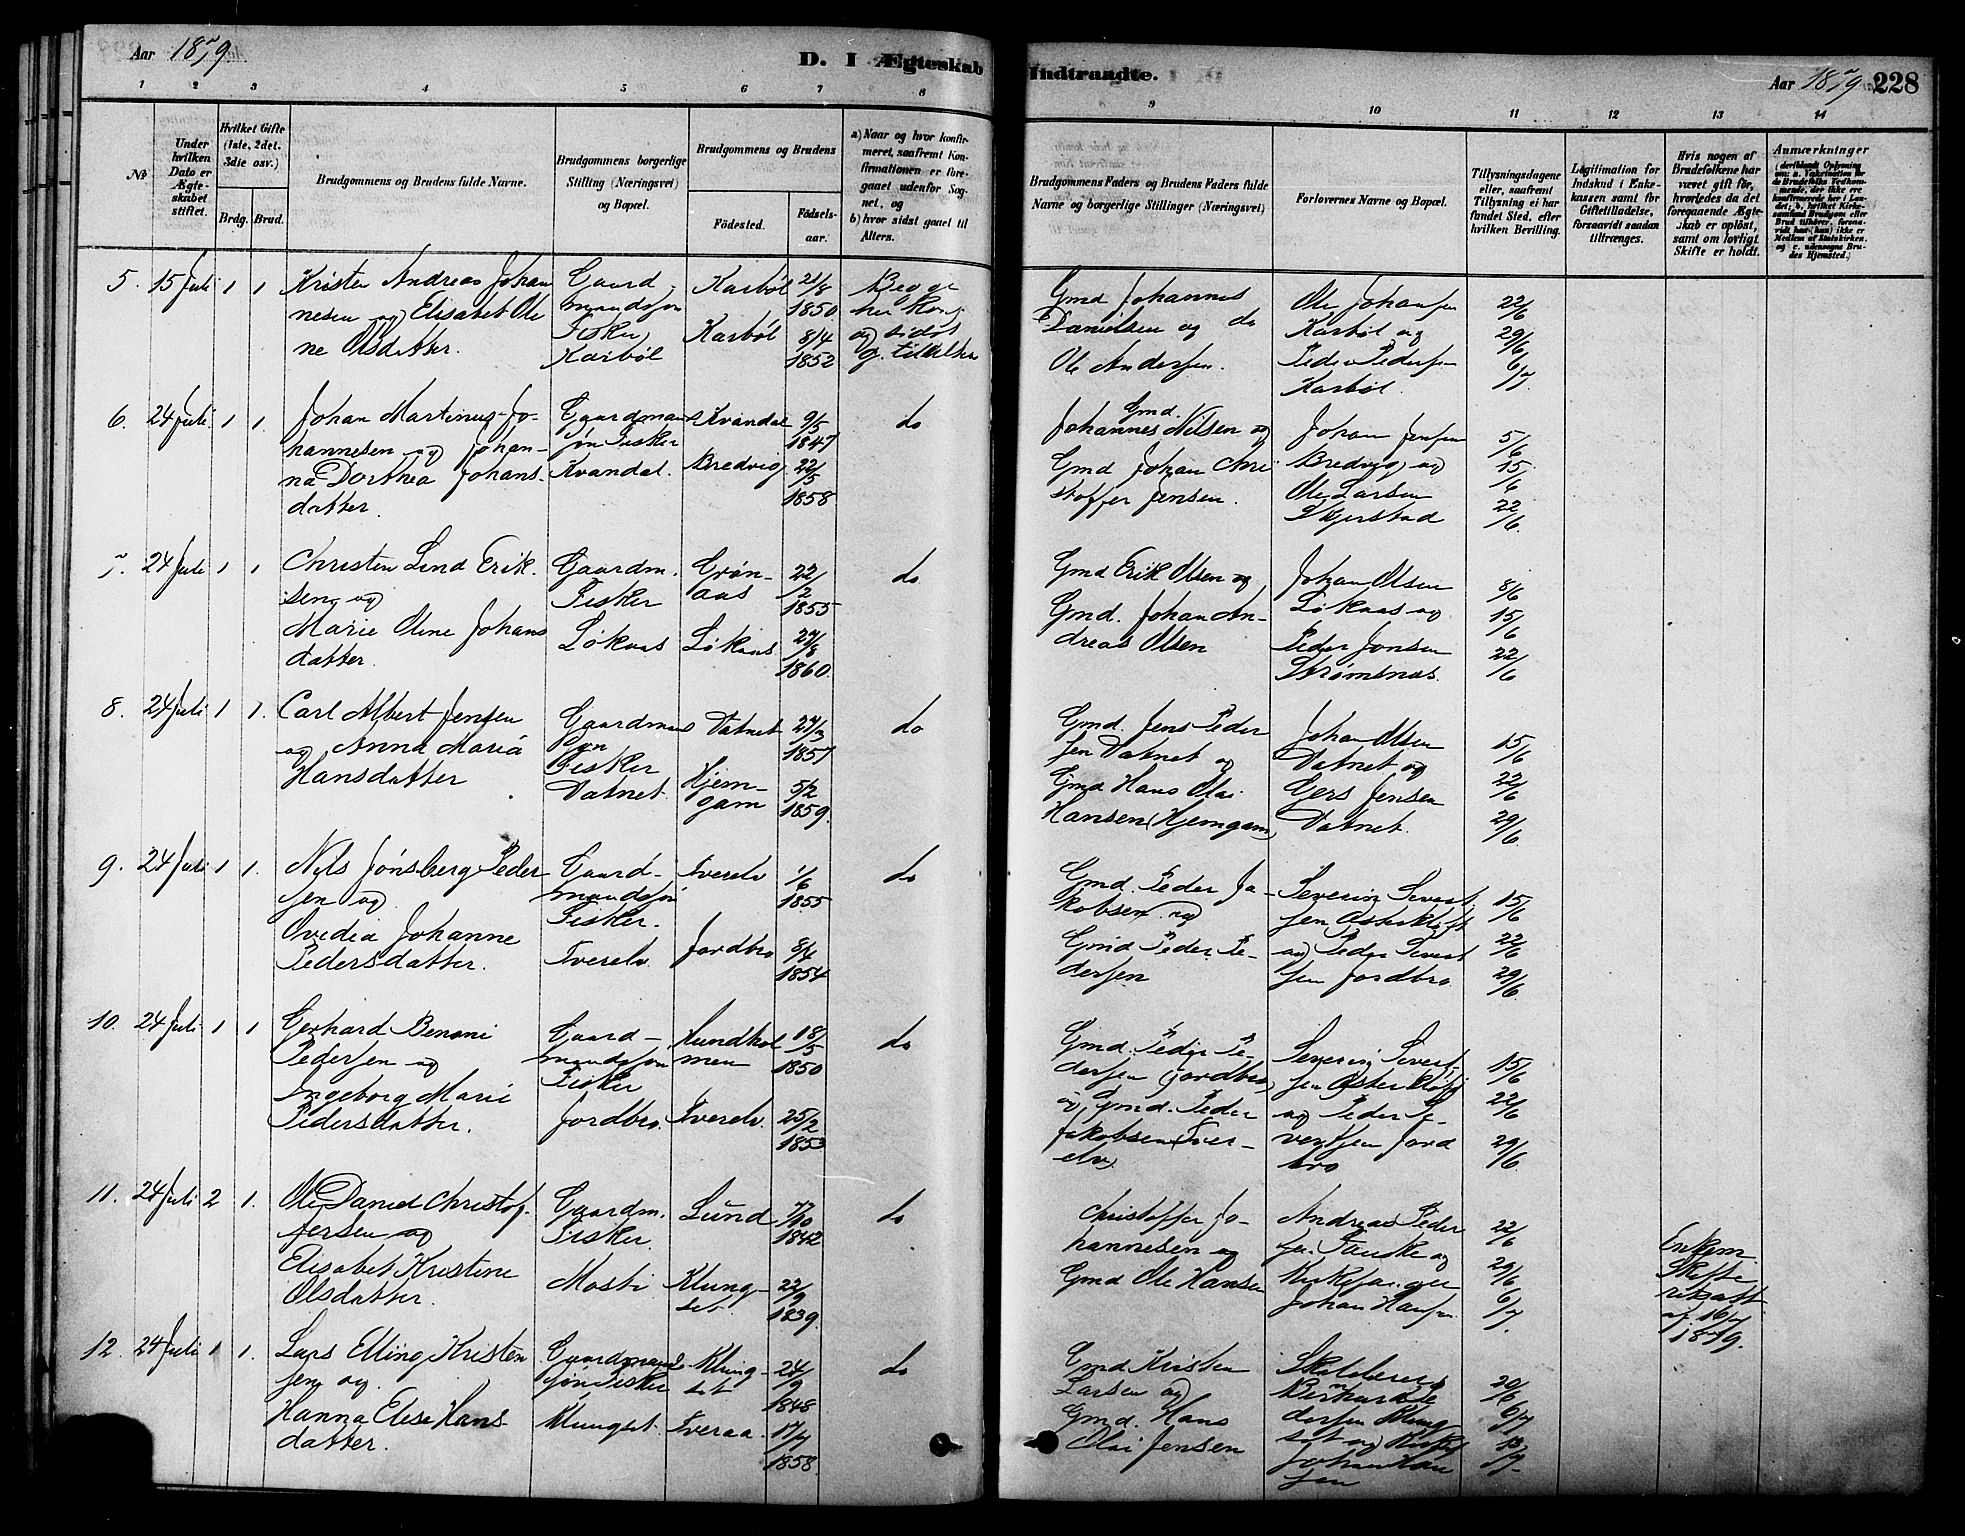 Aar 1879.
D. I Ægteskab Indtraadte.
Aar 1879 228
1 2 3 4 5 6 7 8 9 10 11 12 13 14
No
Under hvilken Dato er Ægteskabet stiftet.
Hvilket Gifte (1ste, 2det, 3die osv.)
Brdg. Brud.
Brudgommens og Brudens fulde Navne.
Brudgommens borgerlige Stilling (Næringsvei) og Bopæl.
Brudgommens og Brudens
Fødested.
Fødselsaar.
a) Naar og hvor konfirmeret, saafremt Konfirmationen er foregaaet udenfor Sognet, og
b) hvor sidst gaaet til Alters.
Brudgommens Faders og Brudens Faders fulde Navne og borgerlige Stillinger (Næringsvei)
Forlovernes Navne og Bopæl.
Tillysningsdagene eller, saafremt Tillysning ei har fundet Sted, efter hvilken Bevilling.
Legitimation for Indskud i Enkekassen samt for Giftetilladelse, forsaavidt saadan tiltrænges.
Hvis nogen af Brudefolkene har været gift før, hvorledes da det foregaaende Ægteskab er opløst, samt om lovligt Skifte er holdt.
Anmærkninger
5. 15 Juli 1 1
Kristen Andreas Johan
nesen og Elisabet Ole
ne Olsdatter.
Gaard
mandssøn
Fisker
Karbøl
Karbøl 21/8 1850
Karbøl 8/4 1852
Begge
her konf
og sidst
g. til alter
Gmd Johannes
Danielsen og do
Ole Andersen.
Ole Johansen
Karbøl og
Peder Pedersen
Karbøl.
22/6
29/6
6/7
6. 24 Juli 1 1.
Johan Martinus Jo-
hannesen og Johan-
na Dorthea Johans-
datter.
Gaardmans
søn Fisker
Kvandal.
Kvandal 9/5 1847
Bredvig 22/5 1858
do
Gmd.
Johannes Nilsen og
Gmd Johan Chri
stoffer Jensen.
Johan Jensen
Bredvig og
Ole Larsen
Skjerstad
5/6
15/6
22/6
7. 24 Juli 1 1
Christen Lind Erik-
sen og
Marie Oline Johans
datter.
Gaardm.
Fisker
Løkaas
Grøn-
aas 22/2 1855
Løkaas 27/8 1860.
do
Gmd Erik Olsen og
Gmd. Johan An-
dreas Olsen
Johan Olsen
Løkaas og
Peder Jonsen
Strømsnæs.
8/6
15/6
22/6
8. 24 Juli 1 1.
Carl Albert Jensen
og Anna Maria
Hansdatter
Gaardmans
søn
Fisker
Vatnet.
Vatnet 27/3 1857
Hjem-
gam 5/2 1859.
do
Gmd. Jens Peder
sen Vatnet og
Gmd Hans Olai
Hansen (Hjemgam)
Johan Olsen
Vatnet og
Gers Jensen
Vatnet.
15/6
22/6
29/6
9. 24 Juli 1 1.
Nils Jønsberg Peder
sen og
Ovedia Johanne
Pedersdatter.
Gaard-
mandssøn
Fisker.
Tverelv.
Tverelv 1/6 1855
Jordbro 8/4 1854
do
Gmd. Peder Ja-
kobsen og
Gmd Peder Pe-
dersen
Severin Sivert
sen Østerkløft
og Peder Sivert
sen Jordbro
15/6
22/6
29/6.
10. 24 Juli 1 1
Gerhard Benoni
Pedersen og
Ingeborg Marie
Pedersdatter.
Gaard-
mandssøn
Fisker
Jordbro.
Hundhol
men 18/5 1850
Tverelv 25/2 1853
do
Gmd. Peder Pe-
dersen (Jordbro)
og Gmd. Peder
Jakobsen (Tver-
elv)
Severin Sivert
sen Østerkløft
og Peder Si-
vertsen Jord
bro
15/6
22/6
29/6.
11. 24 Juli 2 1.
Ole Daniel Christof-
fersen og
Elisabet Kristine
Olsdatter.
Gaardm.
Fisker.
Mosti
Lund 7/10 1842
Klung-
set. 22/9 1839.
do
Christoffer Jo-
hannesen og
Gmd Ole Hansen
Andreas Peder
sen Fauske og
Kirkesanger
Johan Hansen
22/6
29/6
6/7.
Enkem
Skifte
attest
af 16/7
1879.
12. 24 Juli 1 1.
Lars Elling Kristen
sen og
Hanna Elise Hans
datter.
Gaardmands
søn Fisker
Klungset.
Klung-
set 24/9 1848
Tveraa. 17/7 1858.
do
Gmd Kristen
Larsen og
Gmd. Hans
Olai Jensen
dersen Klung-
set og Kirkes
Johan Han
sen
29/6
6/7
13/7